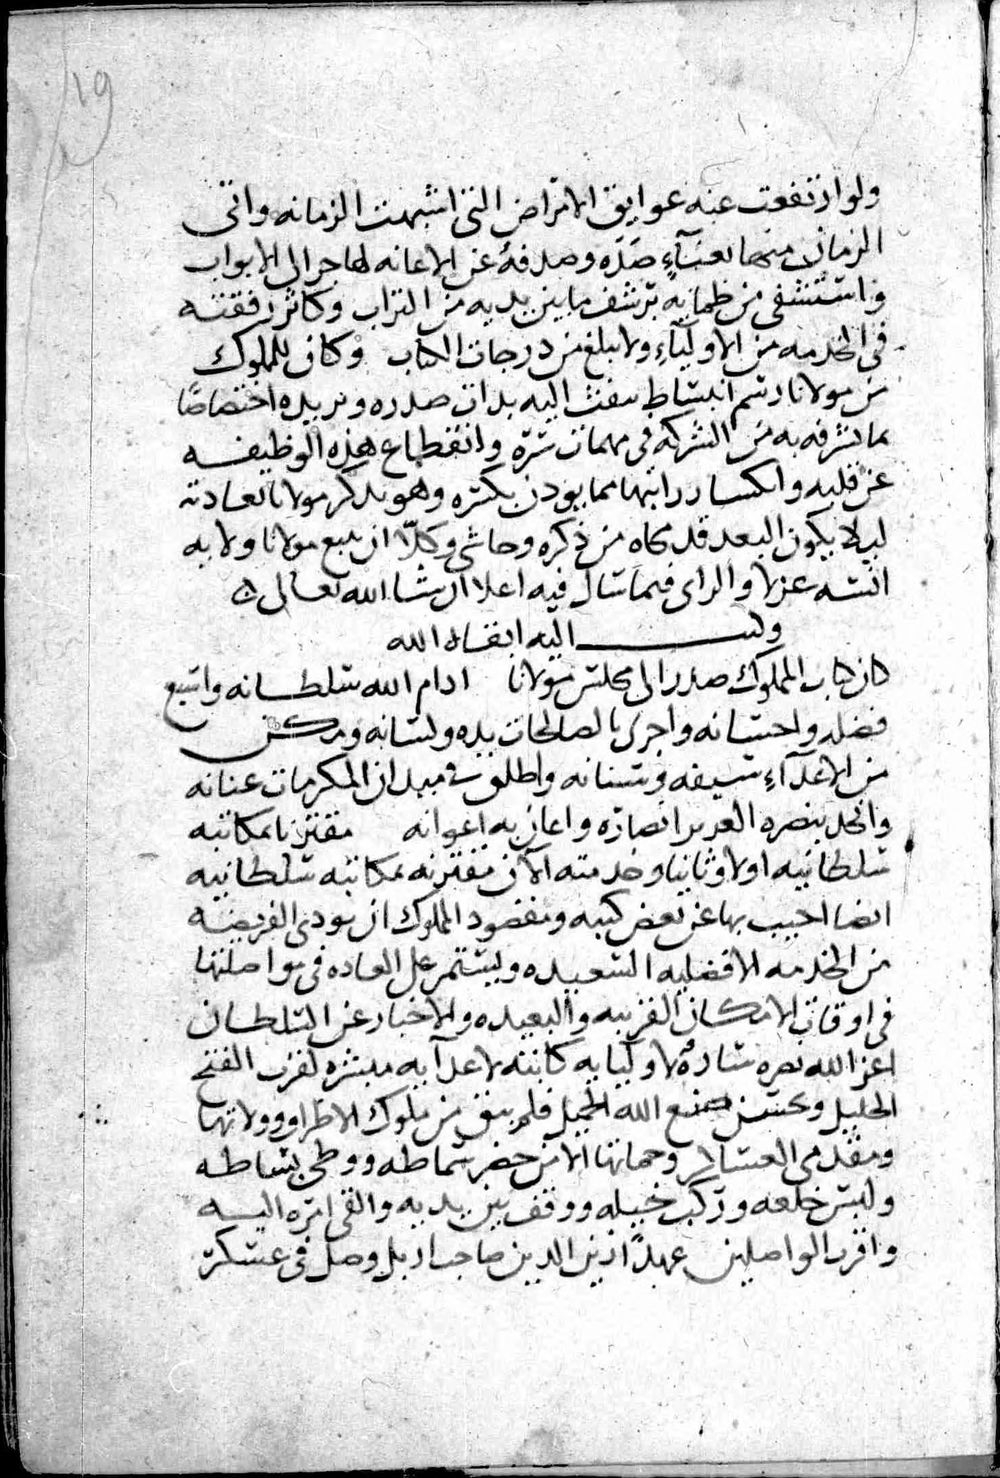 19
ولو ارتفعت عنه عوايق الامراض التي اشبهت الزمانه واتى
الزمان منها بعنآء صَدّه وصدفهُ عن الاعانه لهاجر الى الابواب
واستشفى من ظمايه برشف ما بين يديه من التراب وكاثر رفقته
فى الخدمه من الاوليآء ولا بلغ من درجات الكتاب وكان للملوك
من مولانا رسم انبساط ينفث اليه بذات صدره ويريده اختصاصًا
بما يشرفه به من الشركه في مهمات سرّه وانقطاع هذه الوظيفه
عن قلبه وانكسار رايتها مما يوذن بكسره وهو يذكر مولانا بعادته
ليلا يكون البعد قد محاه من ذكره وحاشى وكلّا ان يتبع مولانا ولايه
انسه عزلا والراى فيما سال فيه اعلا ان شا الله تعالى
وكتب اليه ابقاه الله
كان كتاب المملوك صدر الى مجلس مولانا ادام الله سلطانه واسبغ
فضله واحسانه واجرى بالصالحات يده ولسانه ومكن
من الاعدآء سيفه وسنانه واطلق في ميدان المكرمات عنانه
وانجد بنصره العزيز انصاره واعان به اعوانه مقترنا بمكاتبه
سلطانيه اولا وثانيا وخدمته الآن مقترنه بمكاتبه سلطانيه
ايضا اجيب بها عن بعض كتبه ومقصود المملوك ان يودى الفريضه
من الخدمه الافضليه السعيده ويستمر على العاده فى مواصلتها
فى اوقات الامكان القريبه والبعيده والاخبار عن السلطان
اعز الله نصره سارهٌ لاوليايه كابته لاعدآيه مبشره بقرب الفتح
الجليل وبحسن صنع الله الجميل فلم يبق من ملوك الاطراف وولاتها
ومقدمى العساكر وحماتها الا من حضر سماطه ووطى بساطه
ولبس خلعه وركب خيله ووقف بين يديه والقى امره اليه
واقرب الواصلين عهدًا زين الدين صاحب اربل وصل فى عسكر